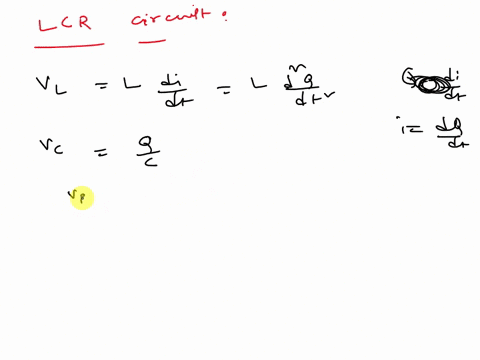 LCR circuit:
V_L = L di/dt = L d²Q/dt²
di/dt
i = dQ/dt
V_C = Q/C
V_R